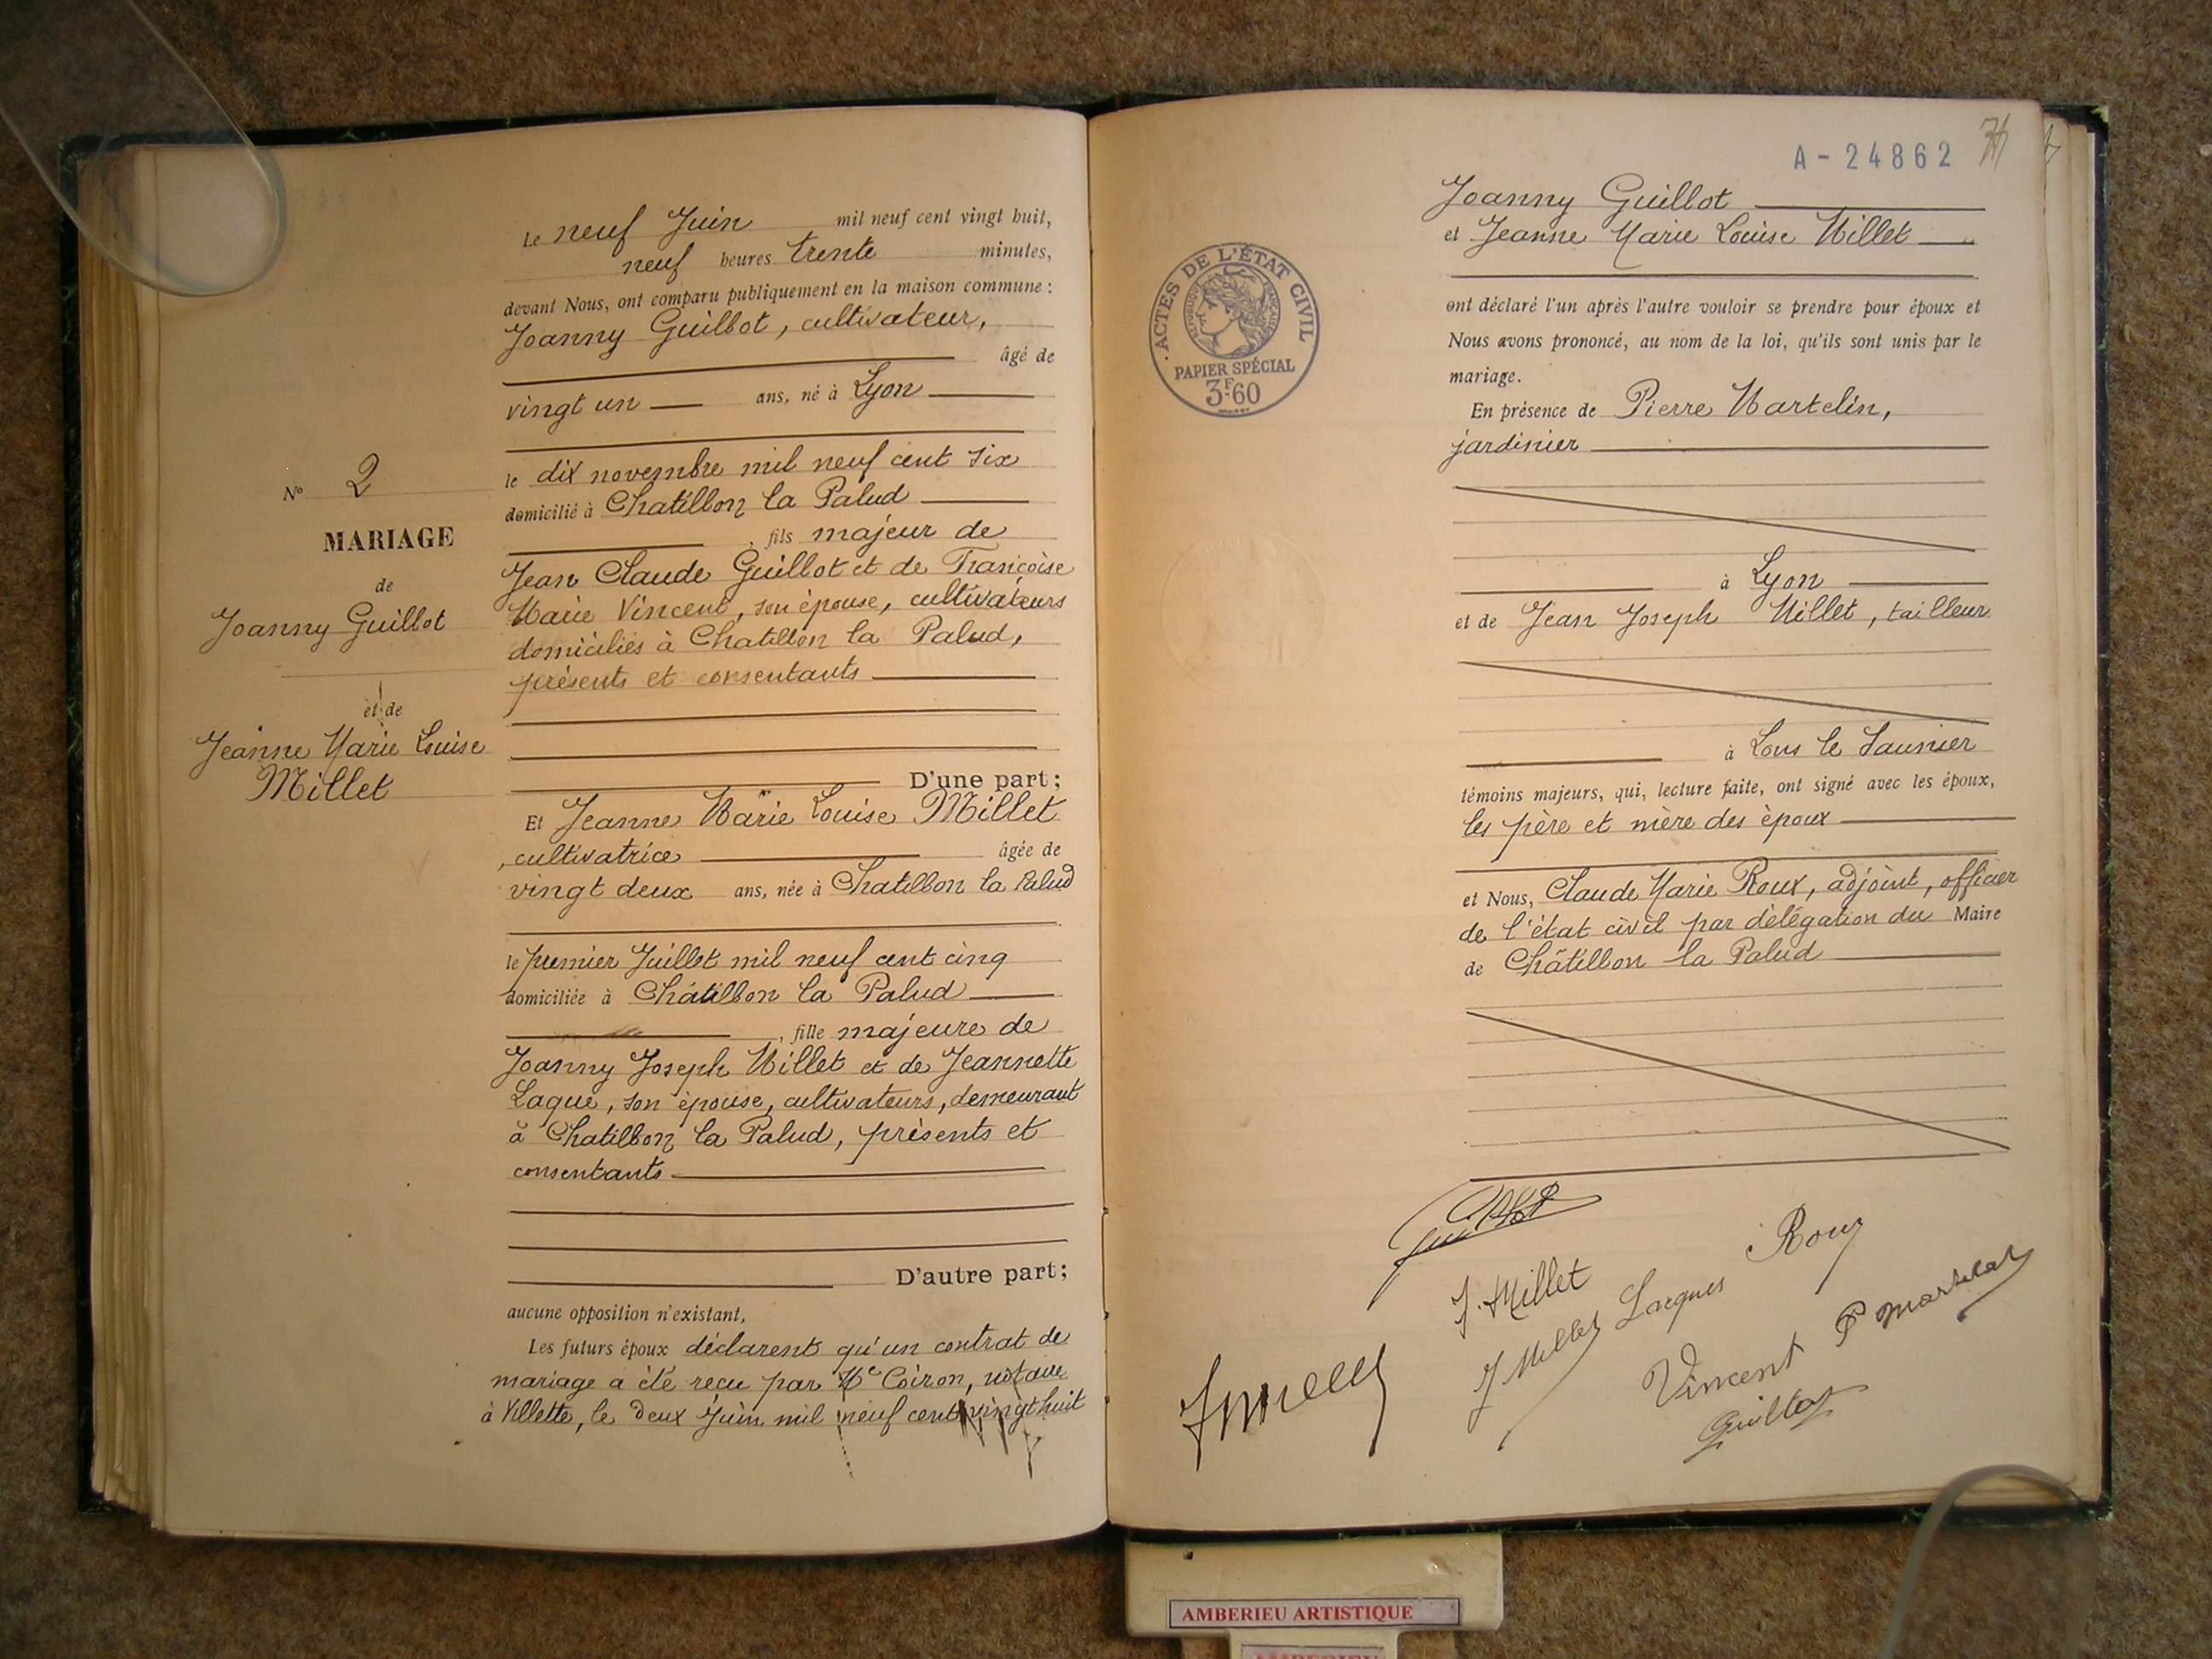 N° 2
MARIAGE
de
Joanny Guillot
et de
Jeanne Marie Louise
Millet
Le neuf Juin mil neuf cent vingt huit,
neuf heures trente minutes,
devant Nous, ont comparu publiquement en la maison commune :
Joanny Guillot, cultivateur,
âgé de
vingt un ans, né à Lyon
le dix novembre mil neuf cent six
domicilié à Chatillon la Palud
, fils majeur de
Jean Claude Guillot et de Françoise
Marie Vincent, son épouse, cultivateurs
domiciliés à Chatillon la Palud,
présents et consentants
D'une part ;
Et Jeanne Marie Louise Millet
, cultivatrice âgée de
vingt deux ans, née à Chatillon la Palud
le premier Juillet mil neuf cent cinq
domiciliée à Châtillon la Palud
, fille majeure de
Joanny Joseph Millet et de Jeannette
Laque, son épouse, cultivateurs, demeurant
à Chatillon la Palud, présents et
consentants
D'autre part ;
aucune opposition n'existant,
Les futurs époux déclarent qu'un contrat de
mariage a été reçu par Me Coiron, notaire
à Villette, le deux Juin mil neuf cent vingt huit
A - 24862
ACTES DE L'ÉTAT CIVIL
RÉPUBLIQUE FRANÇAISE
PAPIER SPÉCIAL
3F.60
Joanny Guillot
et Jeanne Marie Louise Millet
ont déclaré l'un après l'autre vouloir se prendre pour époux et
Nous avons prononcé, au nom de la loi, qu'ils sont unis par le
mariage.
En présence de Pierre Martelin,
jardinier
à Lyon
et de Jean Joseph Millet, tailleur
à Lons le Saunier
témoins majeurs, qui, lecture faite, ont signé avec les époux,
les père et mère des époux
et Nous, Claude Marie Roux, adjoint, officier
de l'état civil par délégation du Maire
de Châtillon la Palud
Guillot
Roux
J. Millet
J Millet Lacques
P Martelat
Vincent
Guillot
AMBERIEU ARTISTIQUE
AMBERIEU